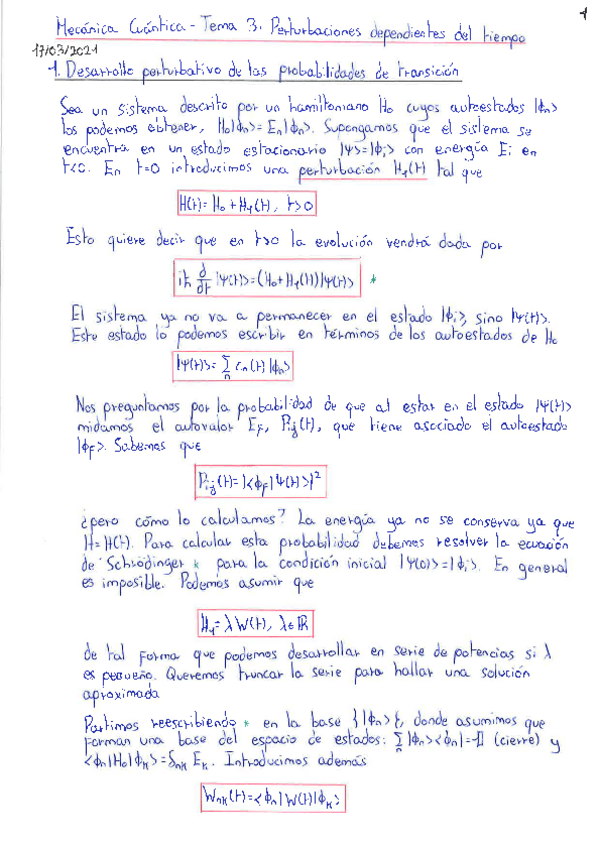 1
Mecánica Cuántica - Tema 3. Perturbaciones dependientes del tiempo
17/03/2021
1. Desarrollo perturbativo de las probabilidades de transición
Sea un sistema descrito por un hamiltoniano H₀ cuyos autoestados |ϕn>
los podemos obtener, H₀|ϕn> = En|ϕn>. Supongamos que el sistema se
encuentra en un estado estacionario |Ψ> = |ϕi> con energía Ei en
t<0. En t=0 introducimos una perturbación H₁(t) tal que
H(t) = H₀ + H₁(t), t>0
Esto quiere decir que en t>0 la evolución vendrá dada por
iħ d/dt |Ψ(t)> = (H₀+H₁(t))|Ψ(t)> *
El sistema ya no va a permanecer en el estado |ϕi>, sino |Ψ(t)>.
Este estado lo podemos escribir en términos de los autoestados de H₀
|Ψ(t)> = Σn cn(t) |ϕn>
Nos preguntamos por la probabilidad de que al estar en el estado |Ψ(t)>
midamos el autovalor EF, Pij(t), que tiene asociado el autoestado
|ϕF>. Sabemos que
Pij(t) = |<ϕF|Ψ(t)>|²
¿pero cómo lo calculamos? La energía ya no se conserva ya que
H=H(t). Para calcular esta probabilidad debemos resolver la ecuación
de Schrödinger * para la condición inicial |Ψ(0)> = |ϕi>. En general
es imposible. Podemos asumir que
H₁ = λ W(t), λ∈ℝ
de tal forma que podemos desarrollar en serie de potencias si λ
es pequeño. Queremos truncar la serie para hallar una solución
aproximada
Partimos reescribiendo * en la base {|ϕn>}, donde asumimos que
forman una base del espacio de estados: Σn |ϕn><ϕn| = 𝟙 (cierre) y
<ϕn|H₀|ϕk> = δnk Ek. Introducimos además
Wnk(t) = <ϕn|W(t)|ϕk>